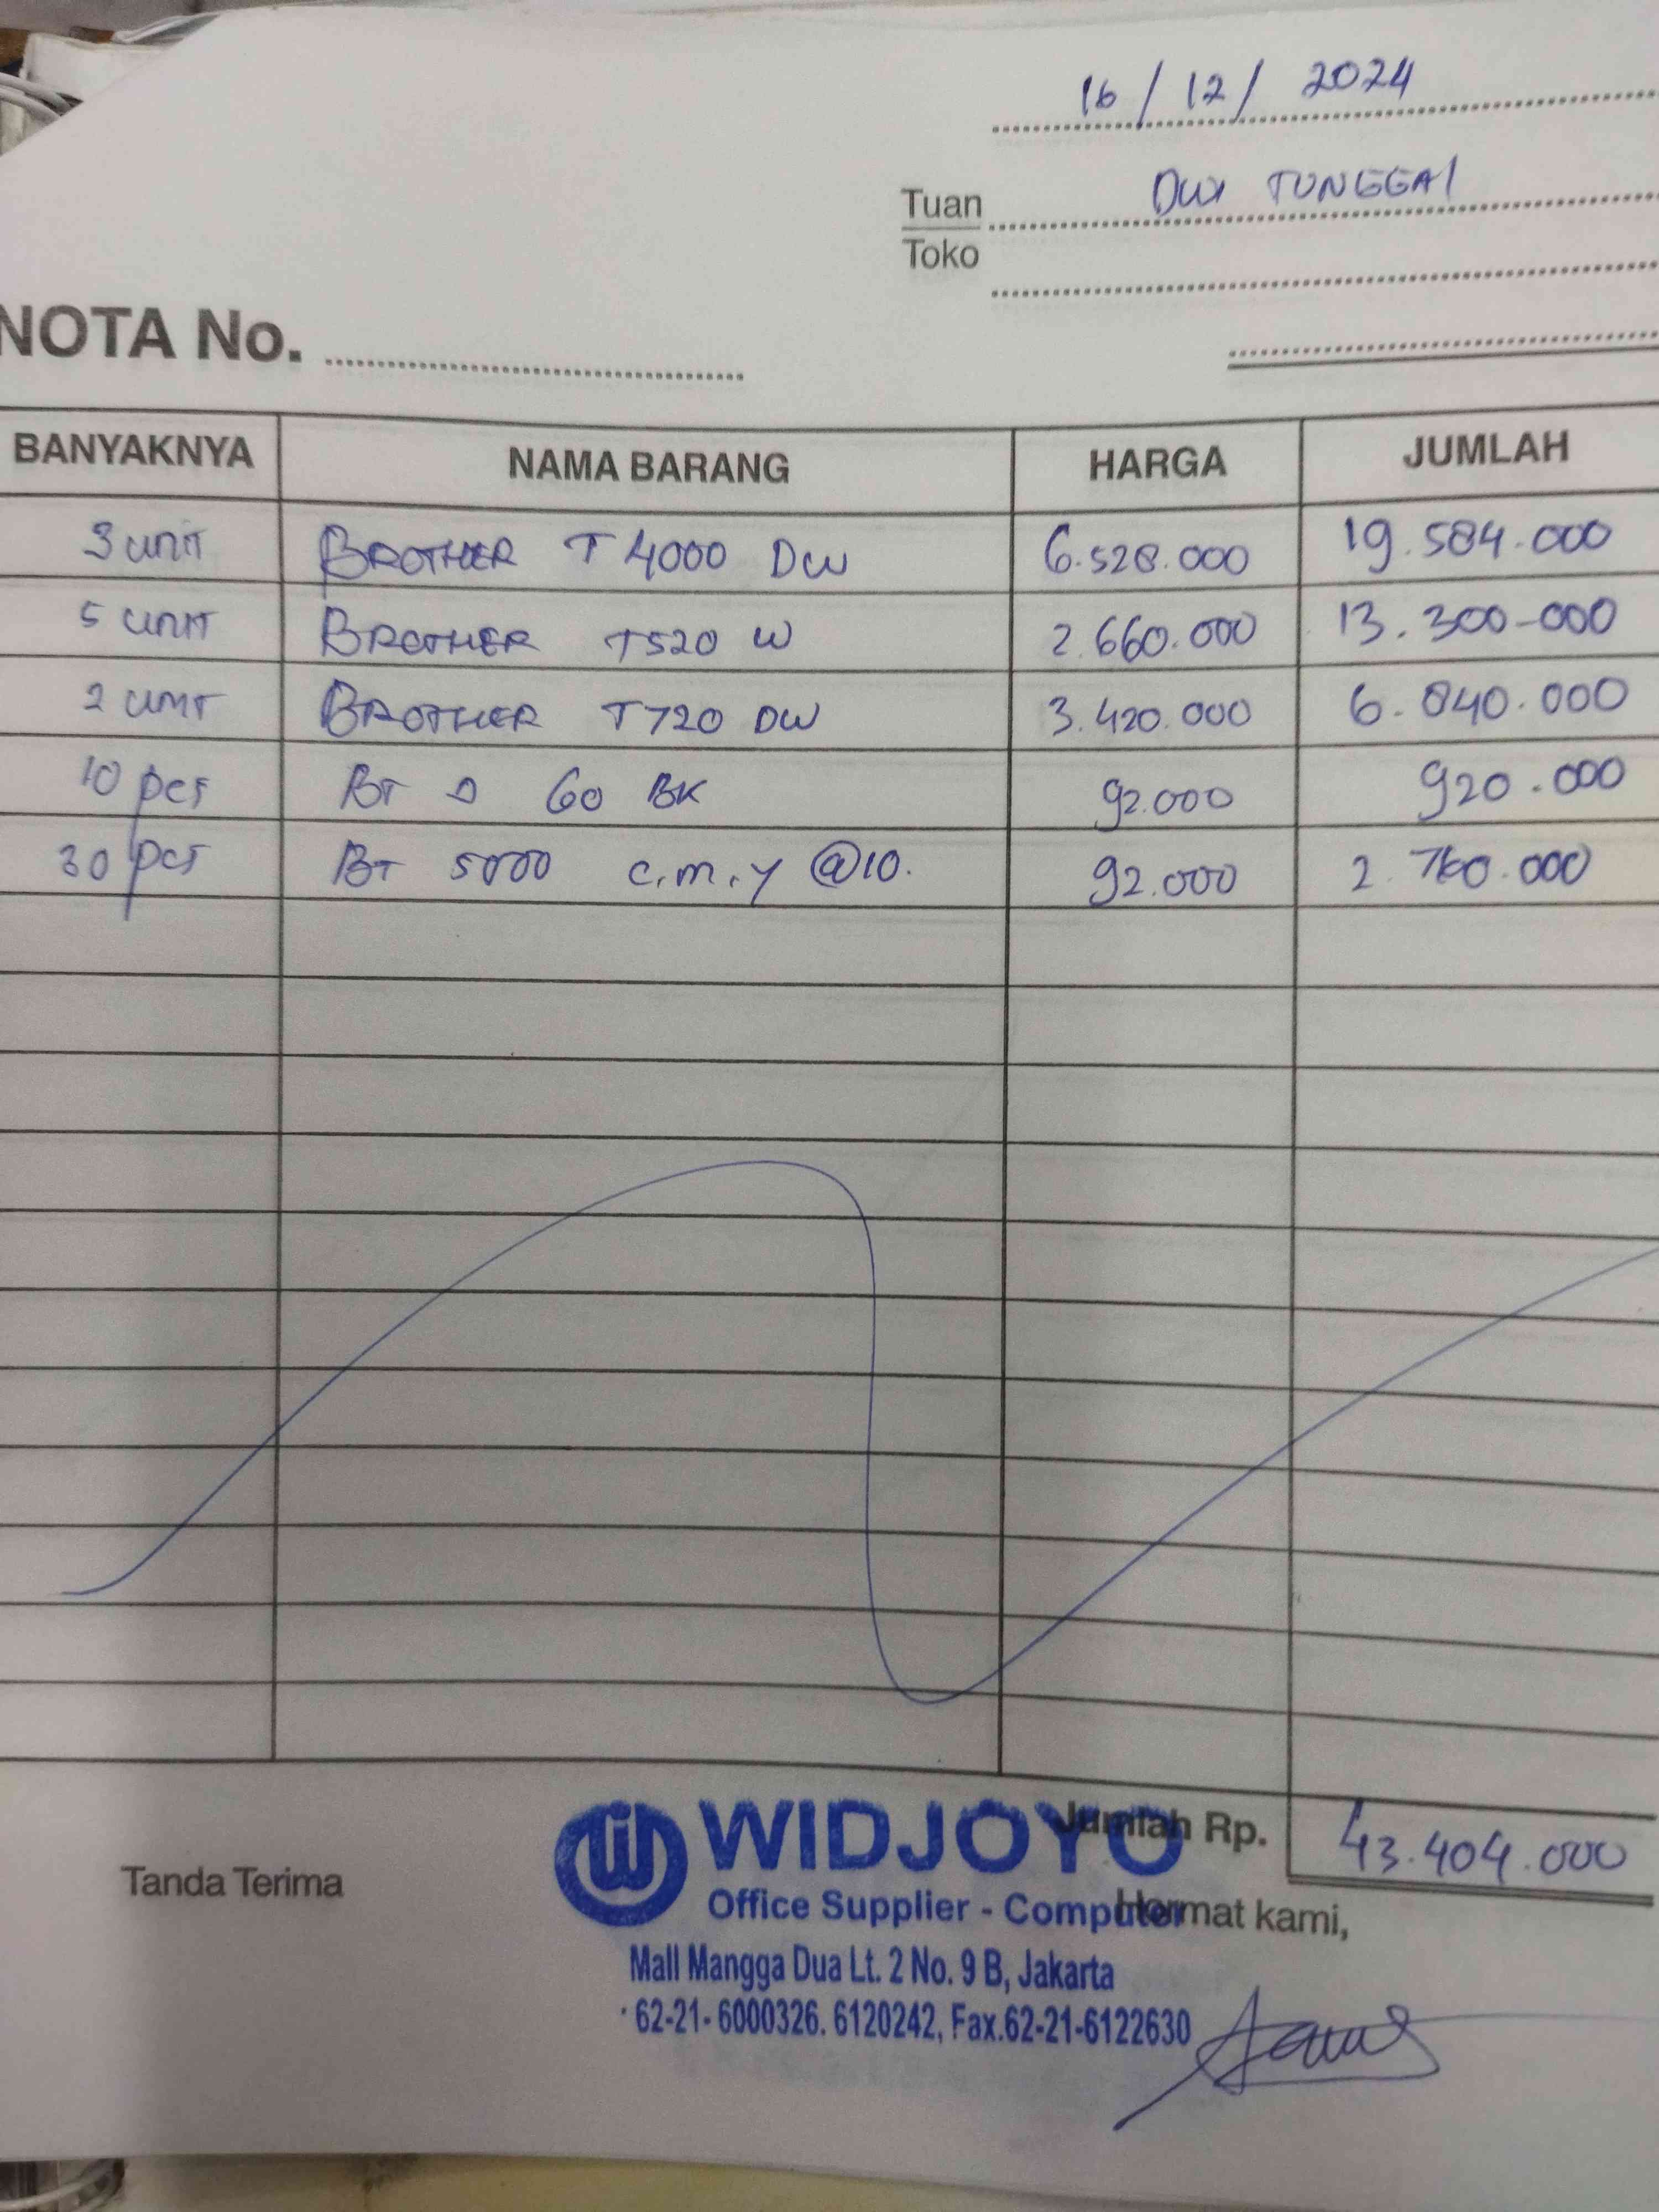 16 / 12 / 2024
Tuan DWI TUNGGAL
Toko
NOTA No.
BANYAKNYA NAMA BARANG HARGA JUMLAH
3 unit BROTHER T 4000 DW 6.528.000 19.584.000
5 unit BROTHER T520 W 2.660.000 13.300-000
2 unit BROTHER T720 DW 3.420.000 6.840.000
10 pcs BT D 60 BK 92.000 920.000
30 pcs BT 5000 c.m.y @10. 92.000 2.760.000
WIDJOYO Jumlah Rp. 43.404.000
Tanda Terima
Office Supplier - Computer Hormat kami,
Mall Mangga Dua Lt. 2 No. 9 B, Jakarta
62-21- 6000326. 6120242, Fax.62-21-6122630